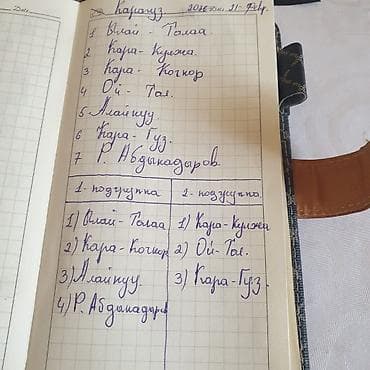 Date
Каракуз 2026 жыл 21-Февр.
1 Ылай - Талаа.
2 Кара - Кулжа.
3 Кара - Кочкор
4 Ой - Тал.
5 Алайкуу.
6 Кара - Гуз.
7 Р. Абдыкадыров.
1- подгруппа 2- подгруппа
1) Ылай - Талаа 1) Кара - Кулжа
2) Кара - Кочкор 2) Ой - Тал.
3) Алайкуу. 3) Кара - Гуз.
4) Р. Абдыкадыров